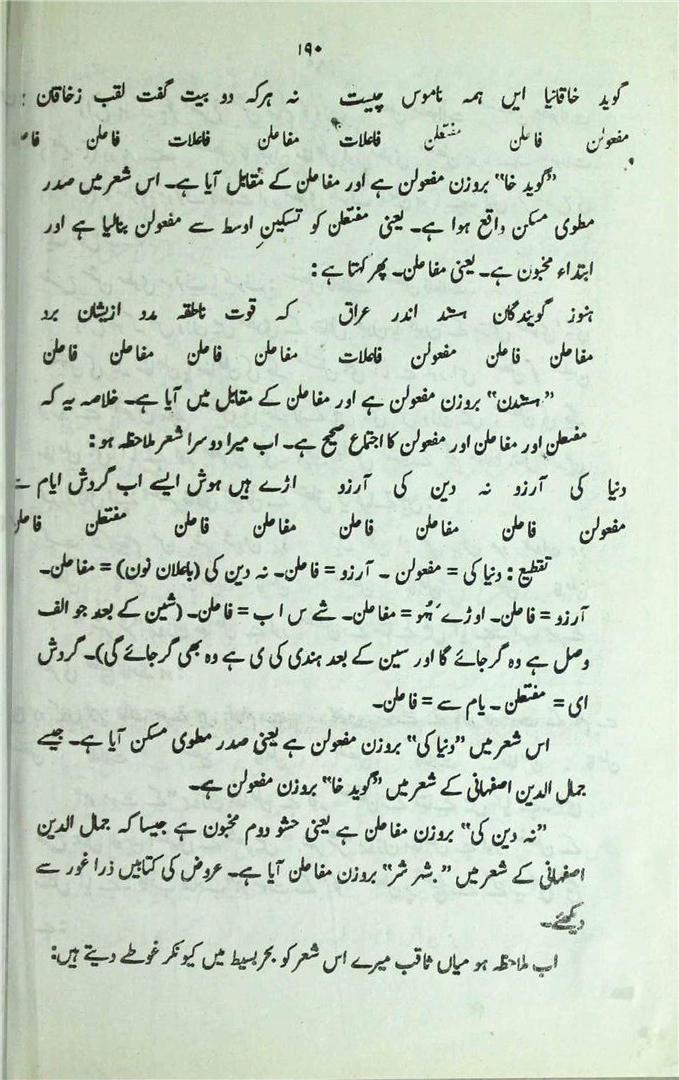 ۱۹۰
گوید خاقانیا ایں ہمہ ناموس چیست نہ ہرکہ دو بیت گفت لقب زخاقان
مفعولن فاعلن مفتعلن فاعلات مفاعلن فاعلات فاعلن
”گوید خا“ بروزن مفعولن ہے اور مفاعلن کے مقابل آیا ہے۔ اس شعر میں صدر
مطوی مسکن واقع ہوا ہے۔ یعنی مفتعلن کو تسکینِ اوسط سے مفعولن بنالیا ہے اور
ابتداء مخبون ہے۔ یعنی مفاعلن۔ پھر کہتا ہے :
ہنوز گویندگان ہستند اندر عراق کہ قوت ناطقہ مدد ازیشان برد
مفاعلن فاعلن مفعولن فاعلات مفاعلن فاعلن مفاعلن فاعلن
”ہستدن“ بروزن مفعولن ہے اور مفاعلن کے مقابل میں آیا ہے۔ خلاصہ یہ کہ
مفتعلن اور مفاعلن اور مفعولن کا اجتماع صحیح ہے۔ اب میرا دوسرا شعر ملاحظہ ہو :
دنیا کی آرزو نہ دین کی آرزو اڑے ہیں ہوش ایسے اب گردش ایام سے
مفعولن فاعلن مفاعلن فاعلن مفاعلن فاعلن مفتعلن فاعلن
تقطیع : دنیا کی = مفعولن ۔ آرزو = فاعلن۔ نہ دین کی (باعلان نون) = مفاعلن۔
آرزو = فاعلن۔ اوڑے ہُو = مفاعلن۔ شے س ا ب = فاعلن۔ (شین کے بعد جو الف
وصل ہے وہ گر جائے گا اور سین کے بعد ہندی کی ی ہے وہ بھی گر جائے گی)۔ گردش
ای = مفتعلن ۔ یام سے = فاعلن۔
اس شعر میں ”دنیا کی“ بروزن مفعولن ہے یعنی صدر مطوی مسکن آیا ہے۔ جیسے
جمال الدین اصفہانی کے شعر میں ”گوید خا“ بروزن مفعولن ہے۔
”نہ دین کی“ بروزن مفاعلن ہے یعنی حشو دوم مخبون ہے جیسا کہ جمال الدین
اصفہانی کے شعر میں ”بشر شر“ بروزن مفاعلن آیا ہے۔ عروض کی کتابیں ذرا غور سے
دیکھئے۔
اب ملاحظہ ہو میاں ثاقب میرے اس شعر کو بحر بسیط میں کیونکر غوطے دیتے ہیں: